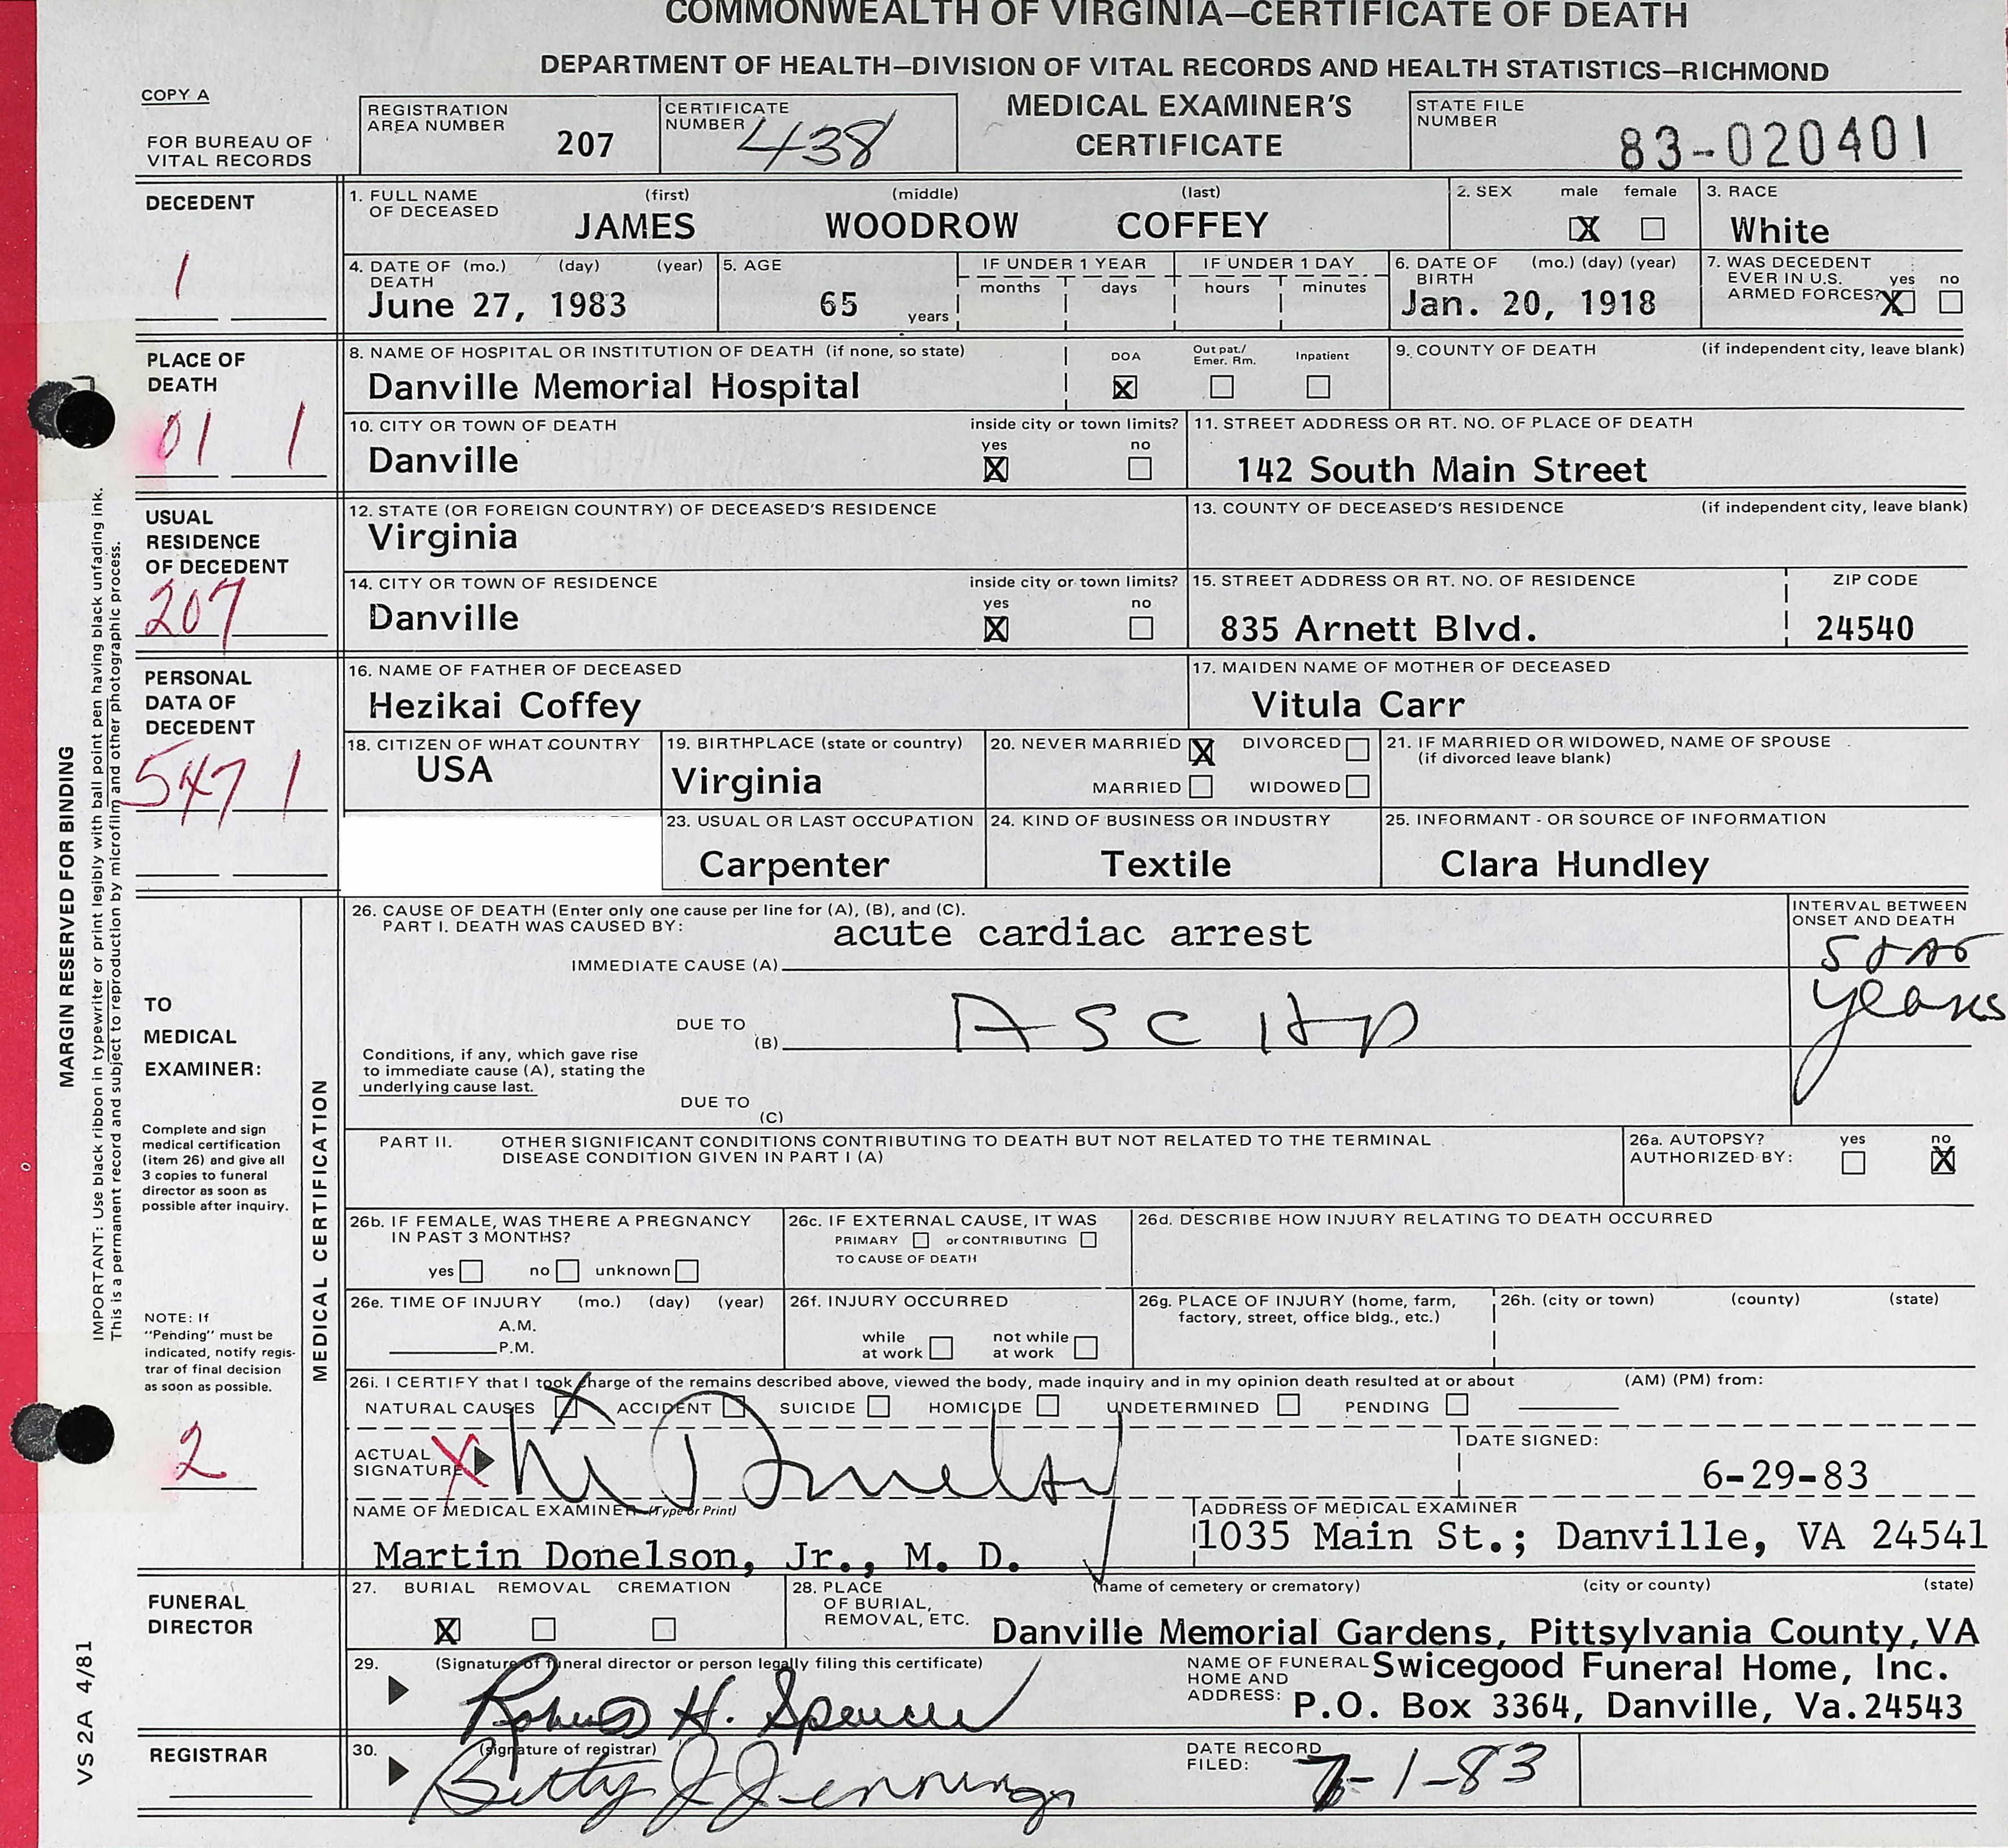 COMMONWEALTH OF VIRGINIA—CERTIFICATE OF DEATH
DEPARTMENT OF HEALTH—DIVISION OF VITAL RECORDS AND HEALTH STATISTICS—RICHMOND
COPY A
FOR BUREAU OF
VITAL RECORDS
REGISTRATION
AREA NUMBER 207
CERTIFICATE
NUMBER 438
MEDICAL EXAMINER'S
CERTIFICATE
STATE FILE
NUMBER 83-020401
DECEDENT
1
1. FULL NAME (first) (middle) (last)
OF DECEASED
JAMES WOODROW COFFEY
2. SEX male female
X
3. RACE
White
4. DATE OF (mo.) (day) (year)
DEATH
June 27, 1983
5. AGE
65 years
IF UNDER 1 YEAR
months days
IF UNDER 1 DAY
hours minutes
6. DATE OF (mo.) (day) (year)
BIRTH
Jan. 20, 1918
7. WAS DECEDENT
EVER IN U.S. yes no
ARMED FORCES? X
PLACE OF
DEATH
01 1
8. NAME OF HOSPITAL OR INSTITUTION OF DEATH (if none, so state)
Danville Memorial Hospital
DOA Out pat./ Inpatient
Emer. Rm.
X
9. COUNTY OF DEATH (if independent city, leave blank)
10. CITY OR TOWN OF DEATH inside city or town limits?
yes no
Danville X
11. STREET ADDRESS OR RT. NO. OF PLACE OF DEATH
142 South Main Street
USUAL
RESIDENCE
OF DECEDENT
207
12. STATE (OR FOREIGN COUNTRY) OF DECEASED'S RESIDENCE
Virginia
13. COUNTY OF DECEASED'S RESIDENCE (if independent city, leave blank)
14. CITY OR TOWN OF RESIDENCE inside city or town limits?
yes no
Danville X
15. STREET ADDRESS OR RT. NO. OF RESIDENCE ZIP CODE
835 Arnett Blvd. 24540
PERSONAL
DATA OF
DECEDENT
547 1
16. NAME OF FATHER OF DECEASED
Hezikai Coffey
17. MAIDEN NAME OF MOTHER OF DECEASED
Vitula Carr
18. CITIZEN OF WHAT COUNTRY
USA
19. BIRTHPLACE (state or country)
Virginia
20. NEVER MARRIED X DIVORCED
MARRIED WIDOWED
21. IF MARRIED OR WIDOWED, NAME OF SPOUSE
(if divorced leave blank)
23. USUAL OR LAST OCCUPATION
Carpenter
24. KIND OF BUSINESS OR INDUSTRY
Textile
25. INFORMANT - OR SOURCE OF INFORMATION
Clara Hundley
MARGIN RESERVED FOR BINDING
IMPORTANT: Use black ribbon in typewriter or print legibly with ball point pen having black unfading ink.
This is a permanent record and subject to reproduction by microfilm and other photographic process.
TO
MEDICAL
EXAMINER:
Complete and sign
medical certification
(item 26) and give all
3 copies to funeral
director as soon as
possible after inquiry.
NOTE: If
"Pending" must be
indicated, notify regis-
trar of final decision
as soon as possible.
2
MEDICAL CERTIFICATION
26. CAUSE OF DEATH (Enter only one cause per line for (A), (B), and (C).
PART I. DEATH WAS CAUSED BY:
IMMEDIATE CAUSE (A) acute cardiac arrest
INTERVAL BETWEEN
ONSET AND DEATH
years
DUE TO
(B) ASCHD
Conditions, if any, which gave rise
to immediate cause (A), stating the
underlying cause last.
DUE TO
(C)
PART II. OTHER SIGNIFICANT CONDITIONS CONTRIBUTING TO DEATH BUT NOT RELATED TO THE TERMINAL
DISEASE CONDITION GIVEN IN PART I (A)
26a. AUTOPSY? yes no
AUTHORIZED BY: X
26b. IF FEMALE, WAS THERE A PREGNANCY
IN PAST 3 MONTHS?
yes no unknown
26c. IF EXTERNAL CAUSE, IT WAS
PRIMARY or CONTRIBUTING
TO CAUSE OF DEATH
26d. DESCRIBE HOW INJURY RELATING TO DEATH OCCURRED
26e. TIME OF INJURY (mo.) (day) (year)
A.M.
P.M.
26f. INJURY OCCURRED
while not while
at work at work
26g. PLACE OF INJURY (home, farm,
factory, street, office bldg., etc.)
26h. (city or town) (county) (state)
26i. I CERTIFY that I took charge of the remains described above, viewed the body, made inquiry and in my opinion death resulted at or about (AM) (PM) from:
NATURAL CAUSES X ACCIDENT SUICIDE HOMICIDE UNDETERMINED PENDING
ACTUAL
SIGNATURE X
DATE SIGNED:
6-29-83
NAME OF MEDICAL EXAMINER (Type or Print)
Martin Donelson, Jr., M. D.
ADDRESS OF MEDICAL EXAMINER
1035 Main St.; Danville, VA 24541
FUNERAL
DIRECTOR
27. BURIAL REMOVAL CREMATION
X
28. PLACE
OF BURIAL,
REMOVAL, ETC.
(name of cemetery or crematory) (city or county) (state)
Danville Memorial Gardens, Pittsylvania County, VA
29. (Signature of funeral director or person legally filing this certificate)
H. Spencer
NAME OF FUNERAL
HOME AND
ADDRESS:
Swicegood Funeral Home, Inc.
P.O. Box 3364, Danville, Va. 24543
REGISTRAR
30. (signature of registrar)
Betty J Jennings
DATE RECORD
FILED: 7-1-83
VS 2A 4/81